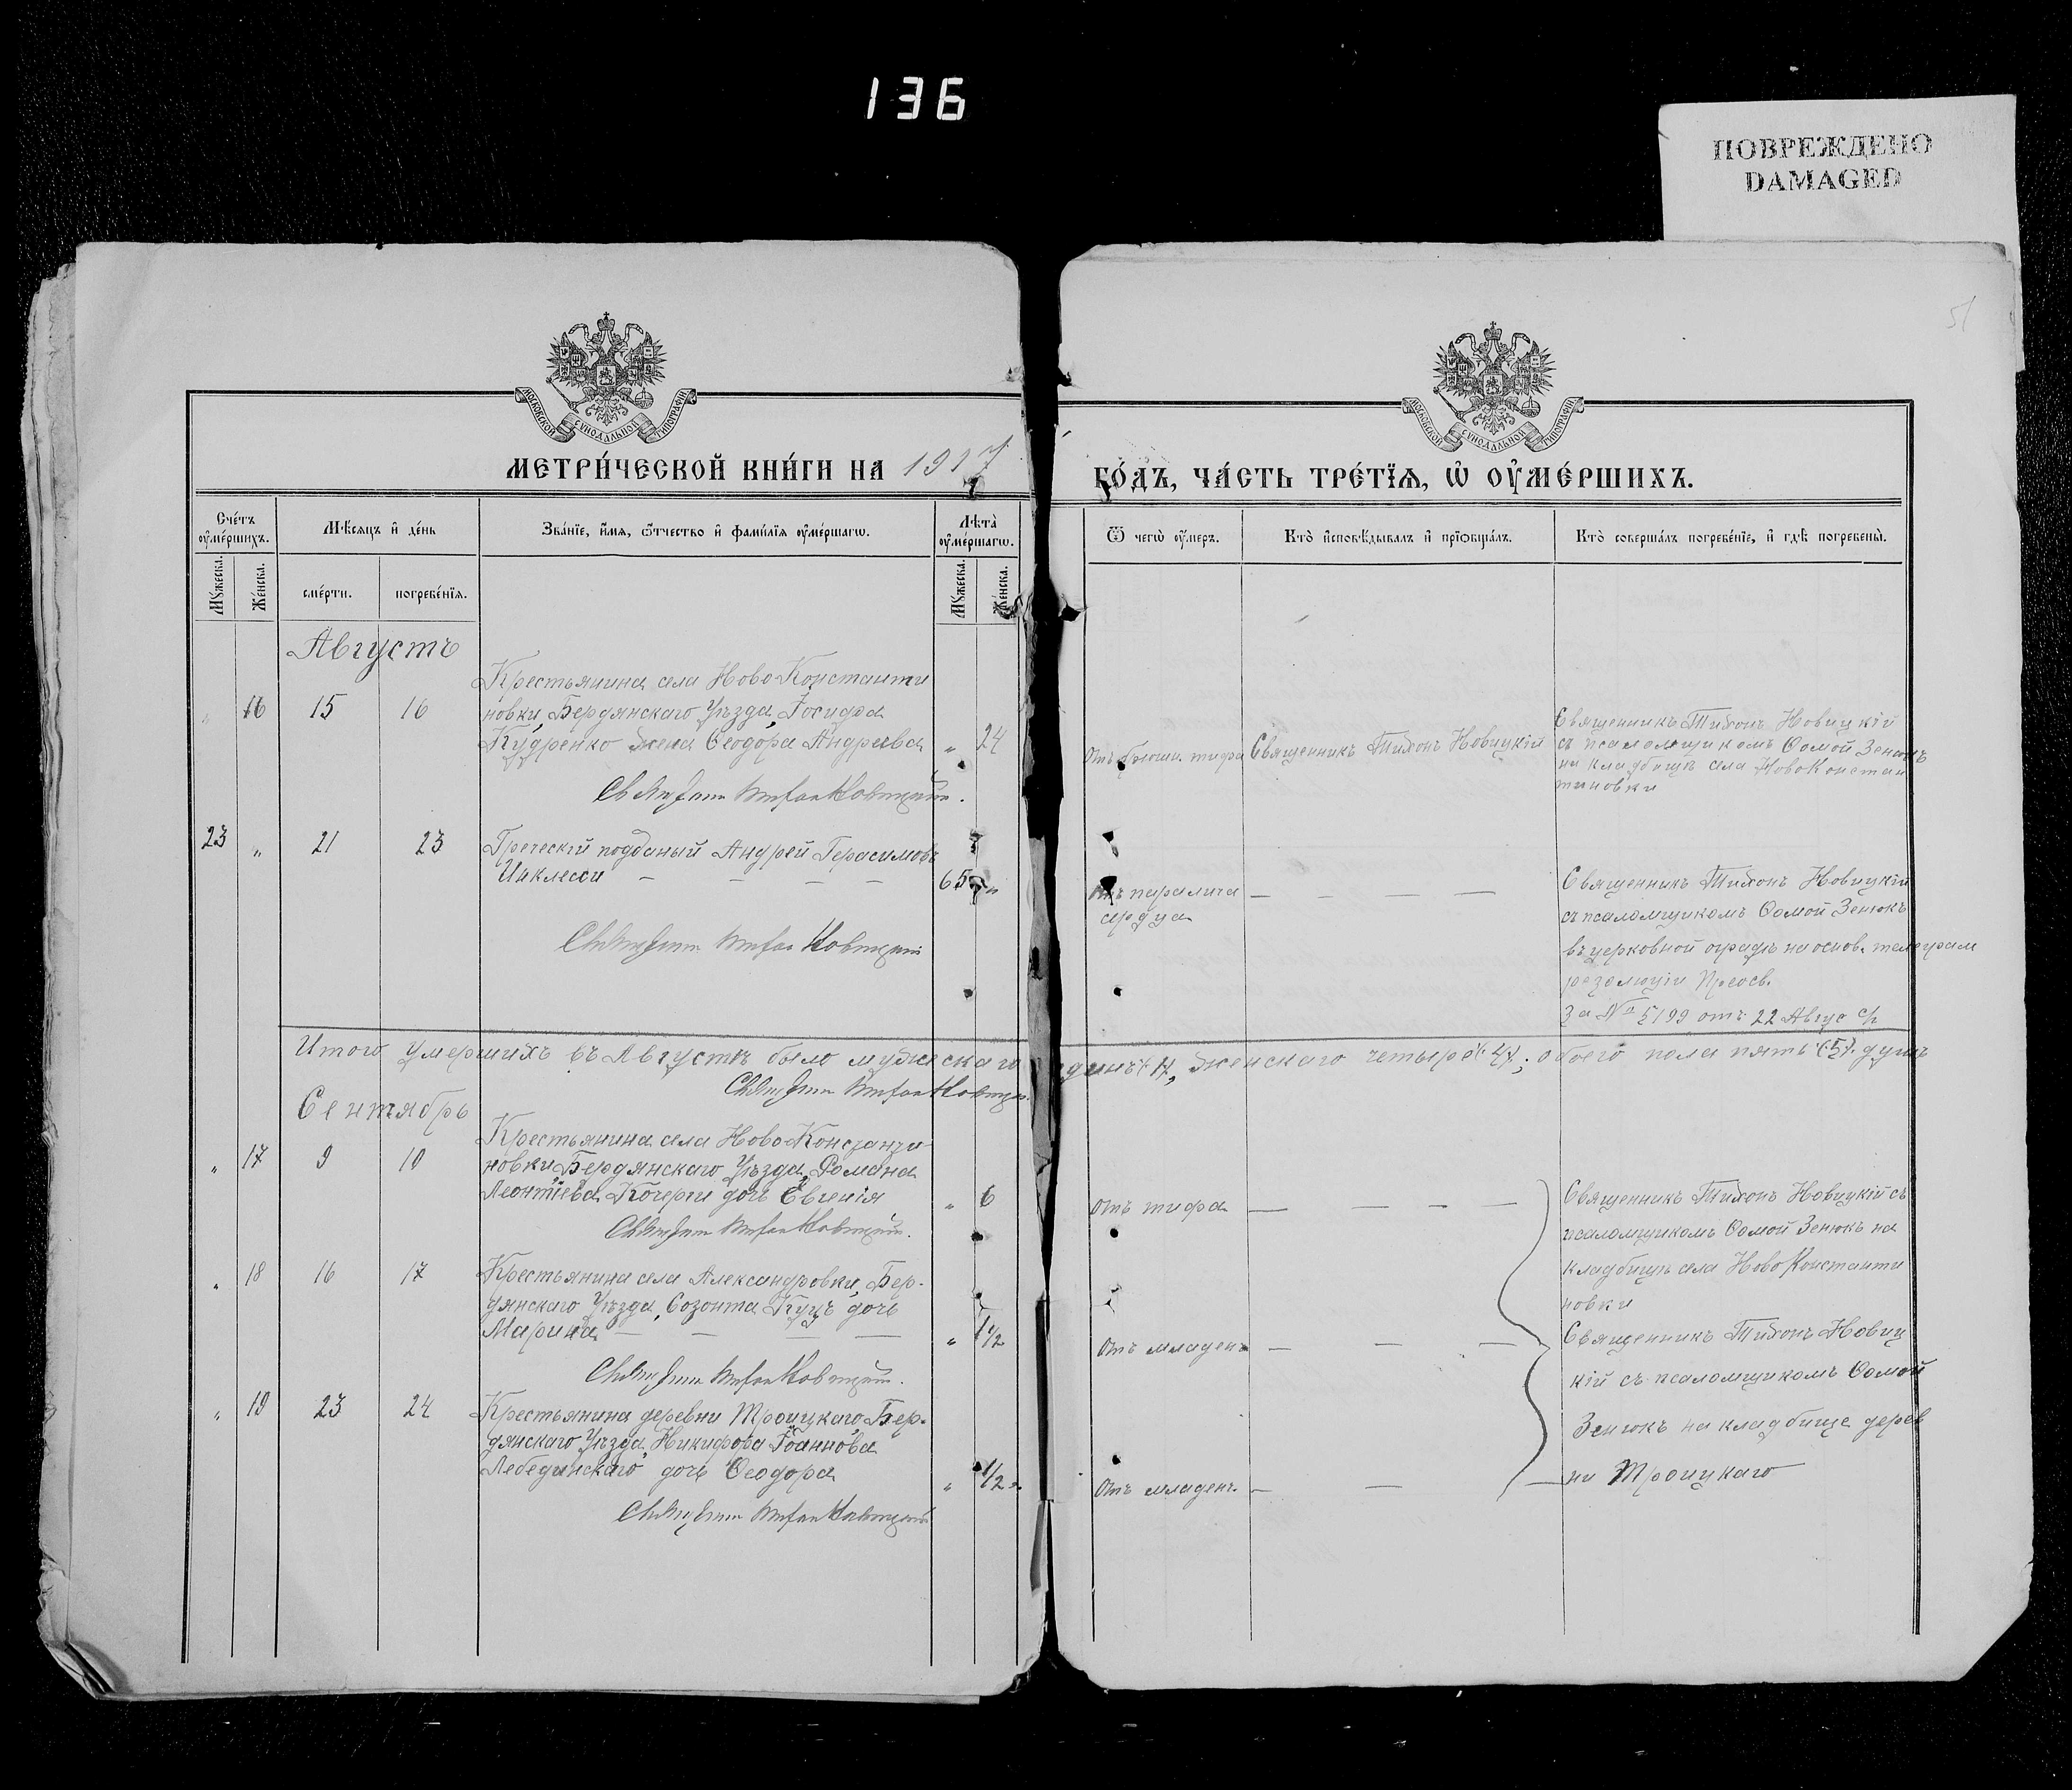 136
ПОВРЕЖДЕНО
DAMAGED
51
МОСКОВСКОЙ СѴНОДАЛЬНОЙ ТИПОГРАФІИ
МОСКОВСКОЙ СѴНОДАЛЬНОЙ ТИПОГРАФІИ
МЕТРИ́ЧЕСКОЙ КНИ́ГИ НА 1917
ГО́ДЪ, ЧА́СТЬ ТРЕ́ТЇѦ, Ѡ҆ ОУ҆МЕ́РШИХЪ.
Сче́тъ оу҆ме́ршихъ.
Мѣ́сѧцъ и҆ де́нь
Зва́нїе, и҆́мѧ, ѻ҆́тчество и҆ фами́лїѧ оу҆ме́ршагѡ.
Лѣ̀та оу҆ме́ршагѡ.
Мꙋ́жеска.
Же́нска.
сме́рти.
погребе́нїѧ.
Мꙋ́жеска.
Же́нска.
Ѿ чегѡ̀ оу҆́меръ.
Кто̀ и҆сповѣ́дывалъ и҆ прїѡбща́лъ.
Кто̀ соверша́лъ погребе́нїе, и҆ гдѣ̀ погребены̀.
Августъ
Крестьянина села Ново Константи
„ 16 15 16 новки, Бердянскаго Уѣзда, Іосифа
Кудренко жена Ѳеодора Андреева „ 24
Отъ брюшн. тифа Священникъ Тихонъ Новицкій
Священникъ Тихонъ Новицкій
съ псаломщикомъ Ѳомой Зенюкъ
на кладбищѣ села НовоКонстан
тиновки
23 „ 21 23 Греческій подданый Андрей Герасимовъ
Инклесси — — — — 65 „
Отъ паралича — — — —
сердца
Священникъ Тихонъ Новицкій
съ псаломщикомъ Ѳомой Зенюкъ
въ церковной оградѣ на основ. телеграм
резолюціи Преосв.
За № 5199 отъ 22 Август с/г
Итого умершихъ въ Августѣ было мужескаго одинъ (1), женскаго четыре (4); обоего пола пять (5) душъ
Сентябрь
Крестьянина села Ново Константи-
„ 17 9 10 новки, Бердянскаго Уѣзда, Романа
Леонтіева Кочерги дочь Евгенія „ 6
Отъ тифа — — — —
Священникъ Тихонъ Новицкій съ
псаломщикомъ Ѳомой Зенюкъ на
кладбищѣ села НовоКонстанти
новки
„ 18 16 17 Крестьянина села Александровки, Бер-
дянскаго Уѣзда, Созонта Куцъ дочь
Марина — — — — „ 1½
Отъ младенч — — —
Священникъ Тихонъ Новиц
кій съ псаломщикомъ Ѳомой
Зенюкъ на кладбище дерев
ни Троицкаго
„ 19 23 24 Крестьянина деревни Троицкаго, Бер-
дянскаго Уѣзда, Никифора Іоаннова
Лебединскаго дочь Ѳеодора „ ½
Отъ младенч. — — —